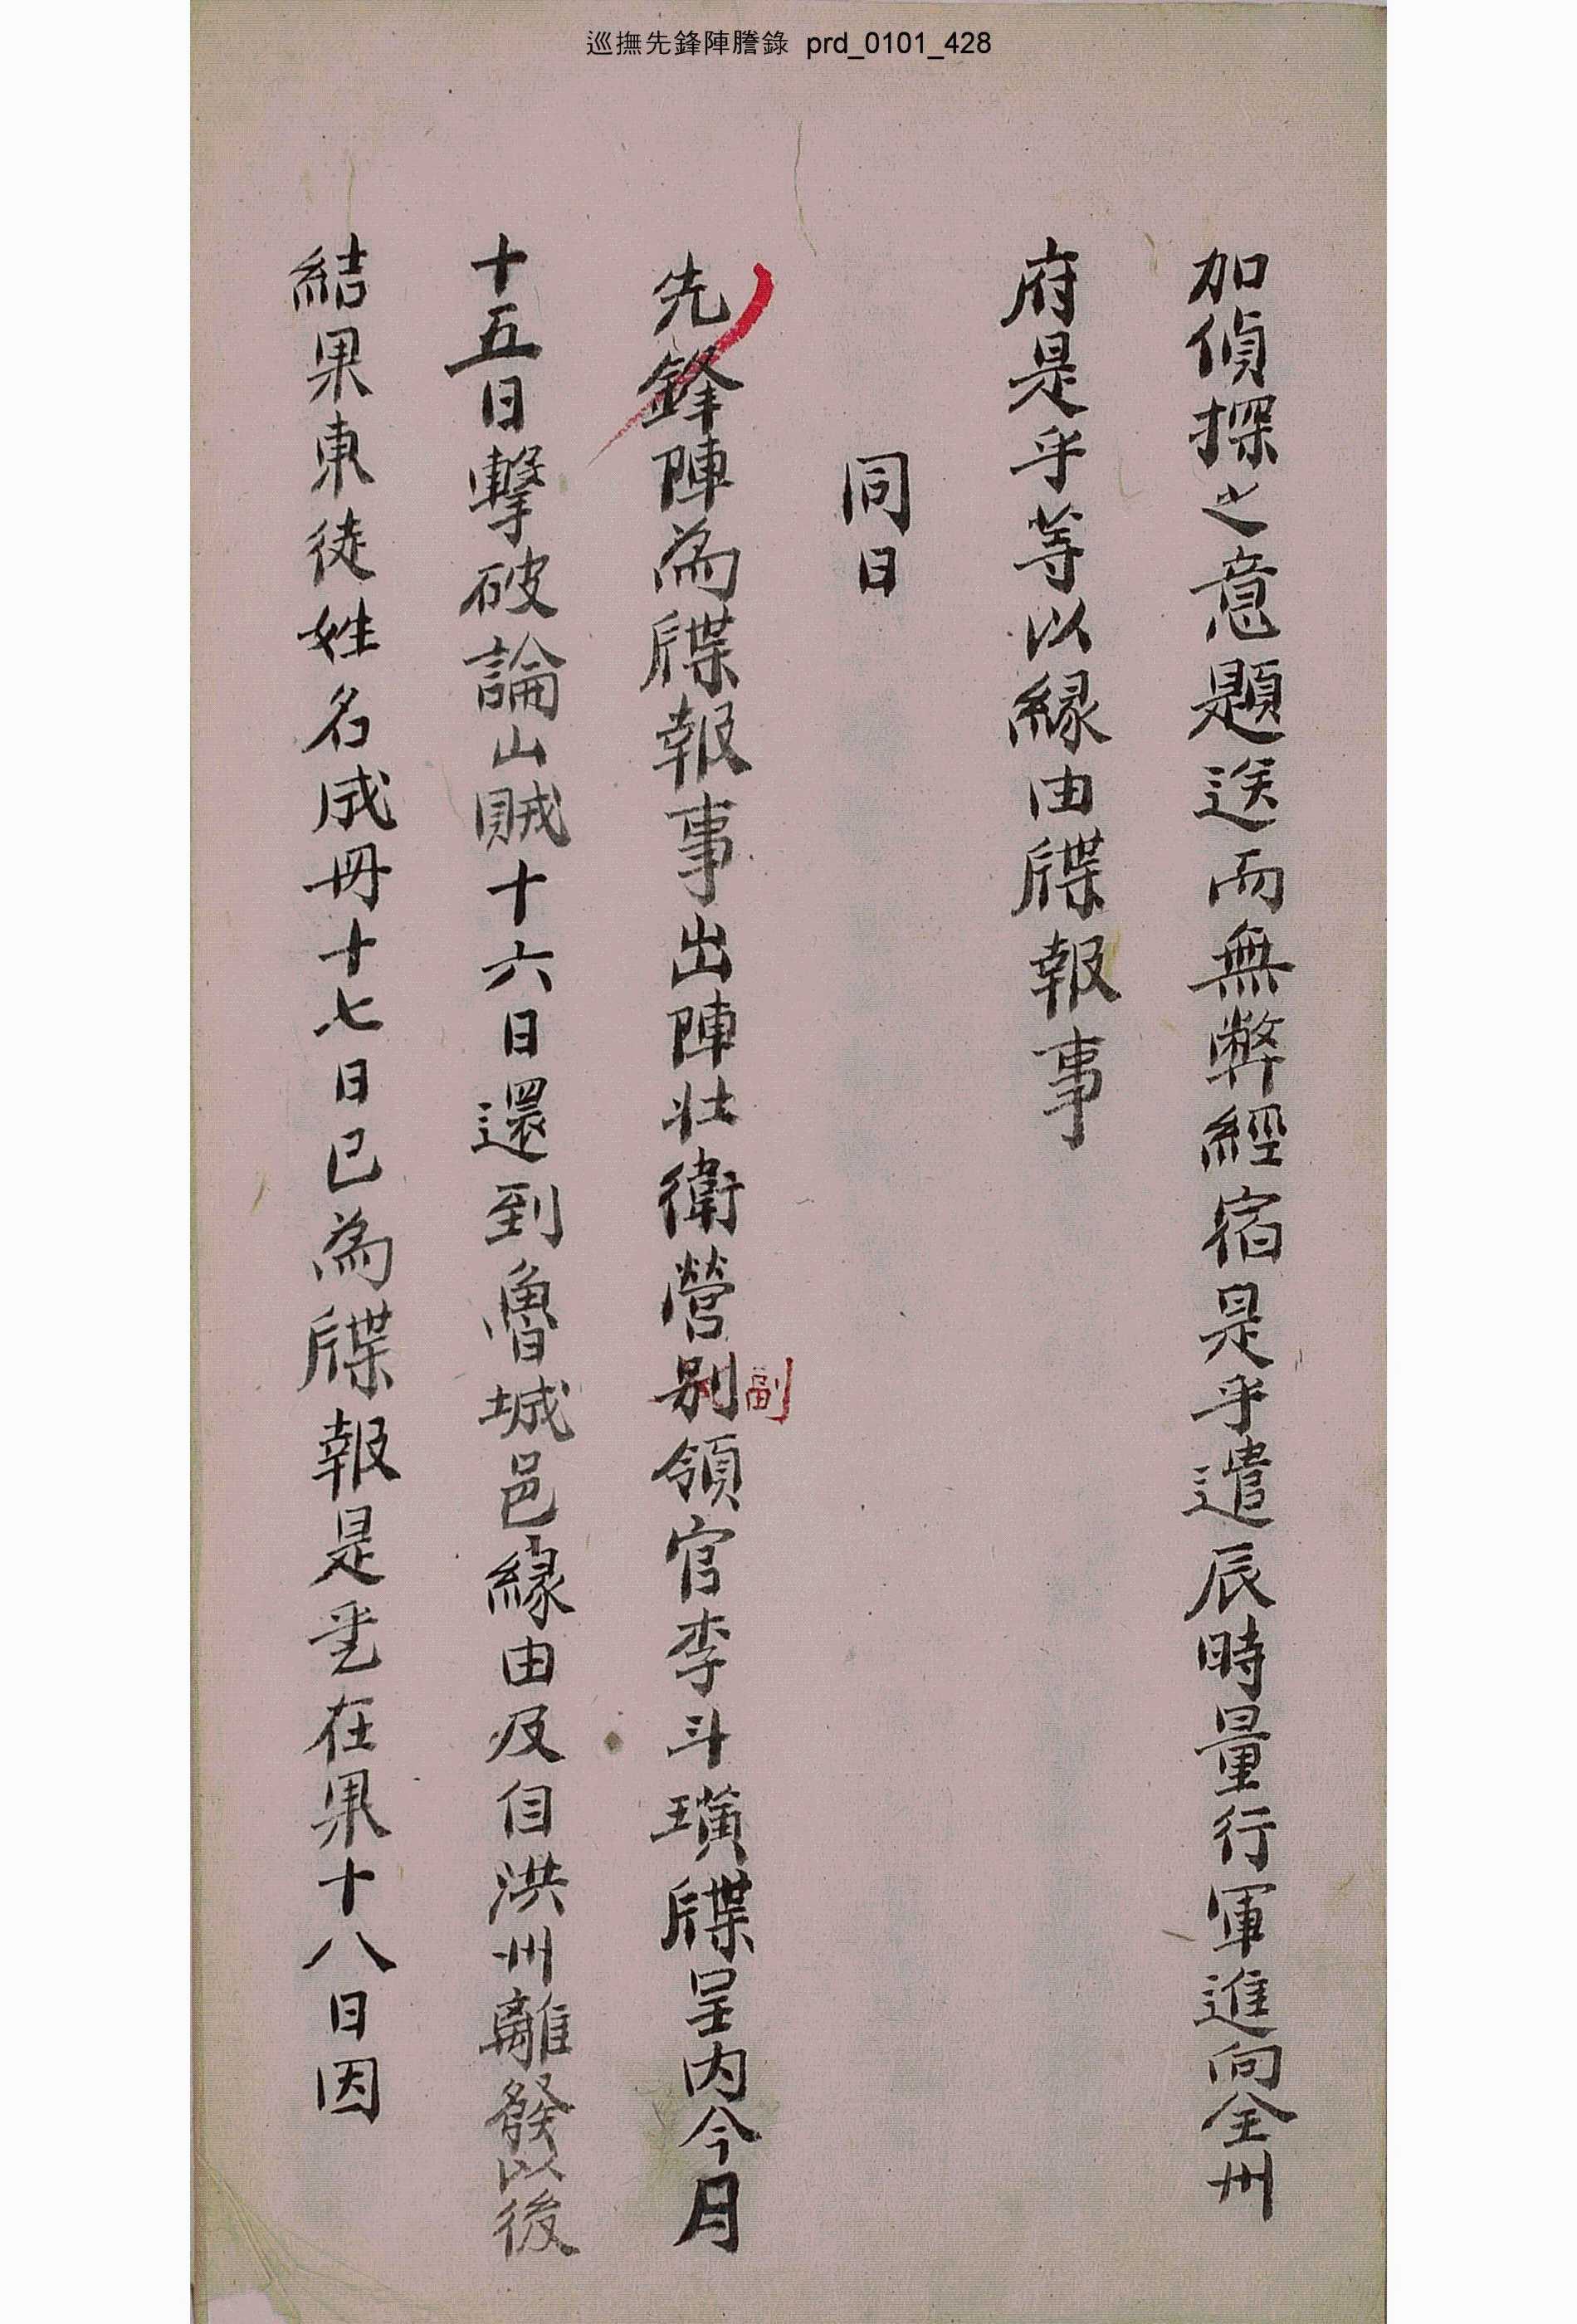 巡撫先鋒陣謄錄 prd_0101_428
加偵探之意題送而無弊經宿是乎遣辰時量行軍進向全州
府是乎等以緣由牒報事
同日
先鋒陣為牒報事出陣壯衛營別領官李斗璜牒呈內今月
副
十五日擊破論山賊十六日還到魯城邑緣由及自洪州離發以後
結果東徒姓名成冊十七日已為牒報是乎在果十八日因